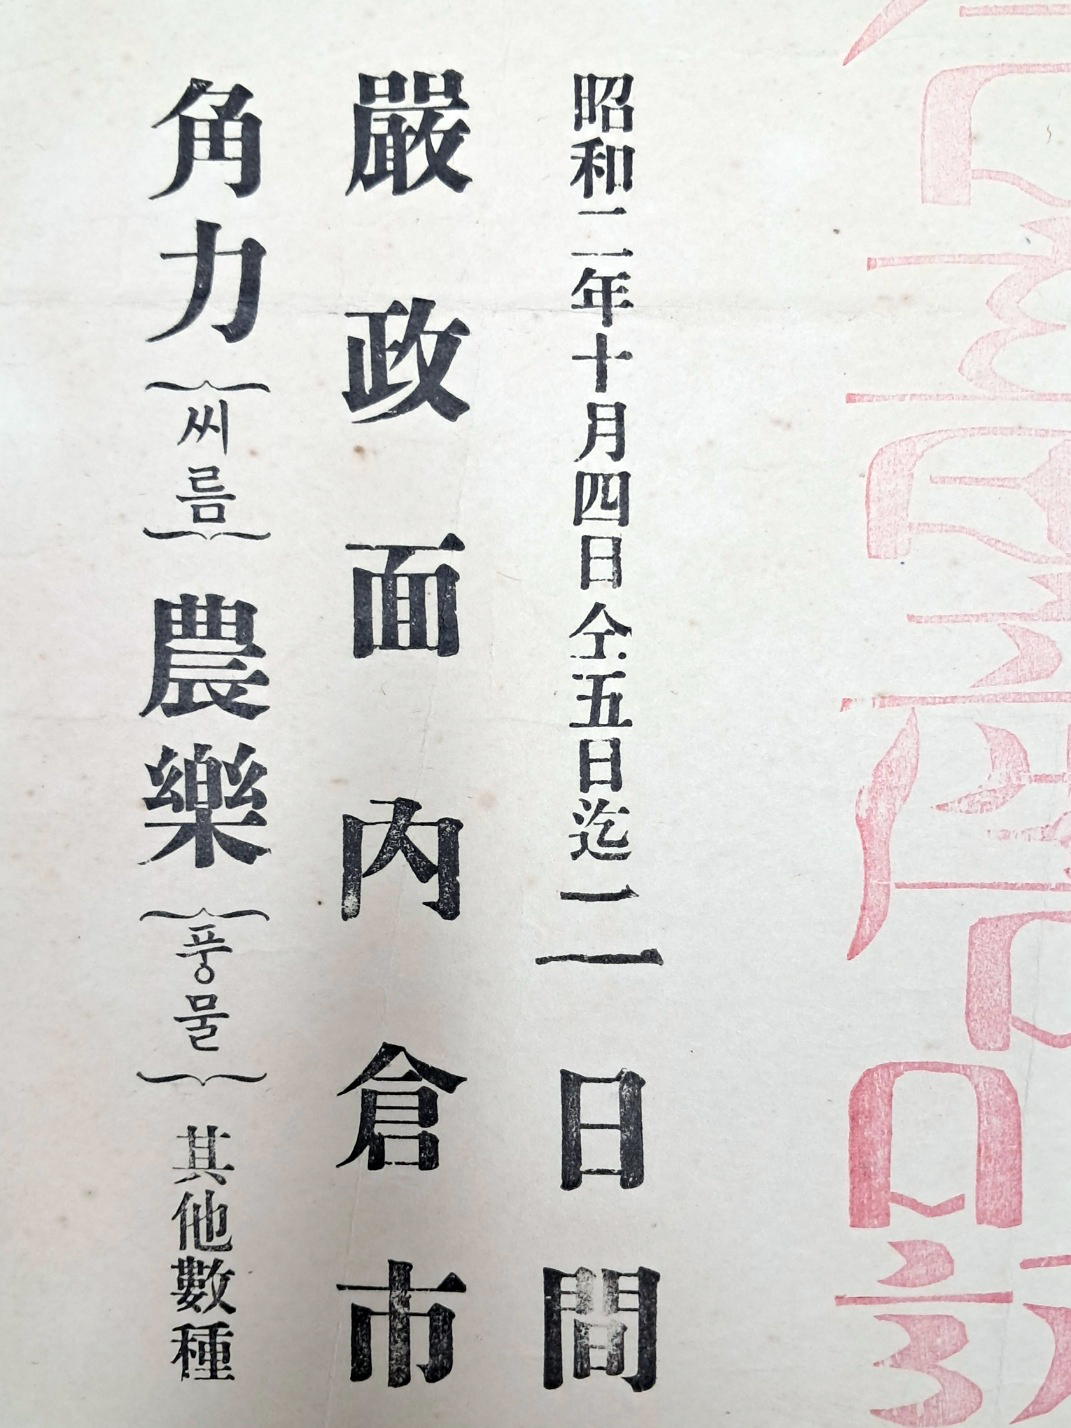 昭和二年十月四日仝五日迄二日間
嚴政面內倉市
角力(씨름)農樂(풍물)其他數種